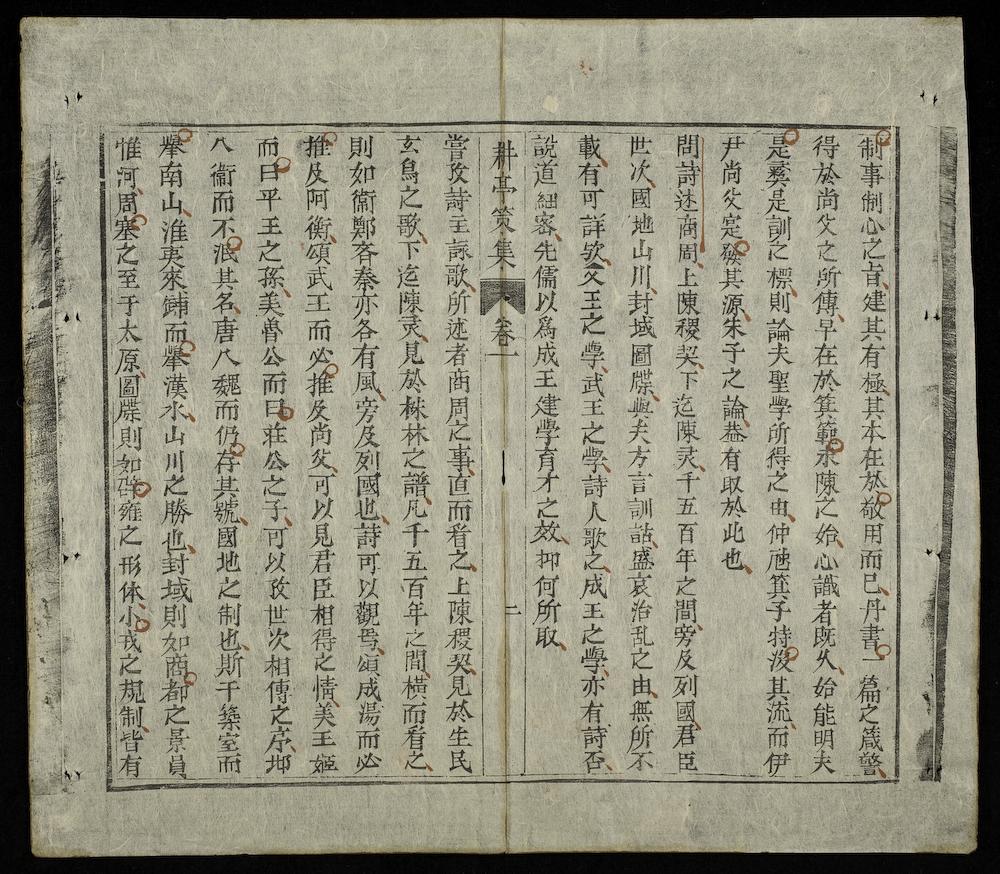 制事制心之旨建其有極其本在於敬用而已丹書一篇之箴警
得於尚父之所傳早在於箕範未陳之始心識者旣久始能明夫
是彝是訓之標則論夫聖學所得之由仲虺箕子特浚其流而伊
尹尚父寔發其源朱子之論葢有取於此也
問詩述商周上陳稷契下迄陳灵千五百年之間旁及列國君臣
世次國地山川封域圖牒與夫方言訓詁盛哀治乱之由無所不
載有可詳欤文王之學武王之學詩人歌之成王之學亦有詩否
說道細密先儒以爲成王建學育才之效抑何所取
耕亭策集 卷一 二
嘗攷詩主詠歌所述者商周之事直而看之上陳稷契見於生民
玄鳥之歌下迄陳灵見於株林之譜凡千五百年之間橫而看之
則如衞鄭齐秦亦各有風旁及列國也詩可以觀焉頌成湯而必
推及阿衡頌武王而必推及尚父可以見君臣相得之情美王姬
而曰平王之孫美魯公而曰莊公之子可以攷世次相傳之序邶
入衞而不泯其名唐入魏而仍存其號國地之制也斯干築室而
舉南山淮夷來鋪而舉漢水山川之勝也封域則如商都之景員
惟河周塞之至于太原圖牒則如辟雍之形体小戎之規制皆有